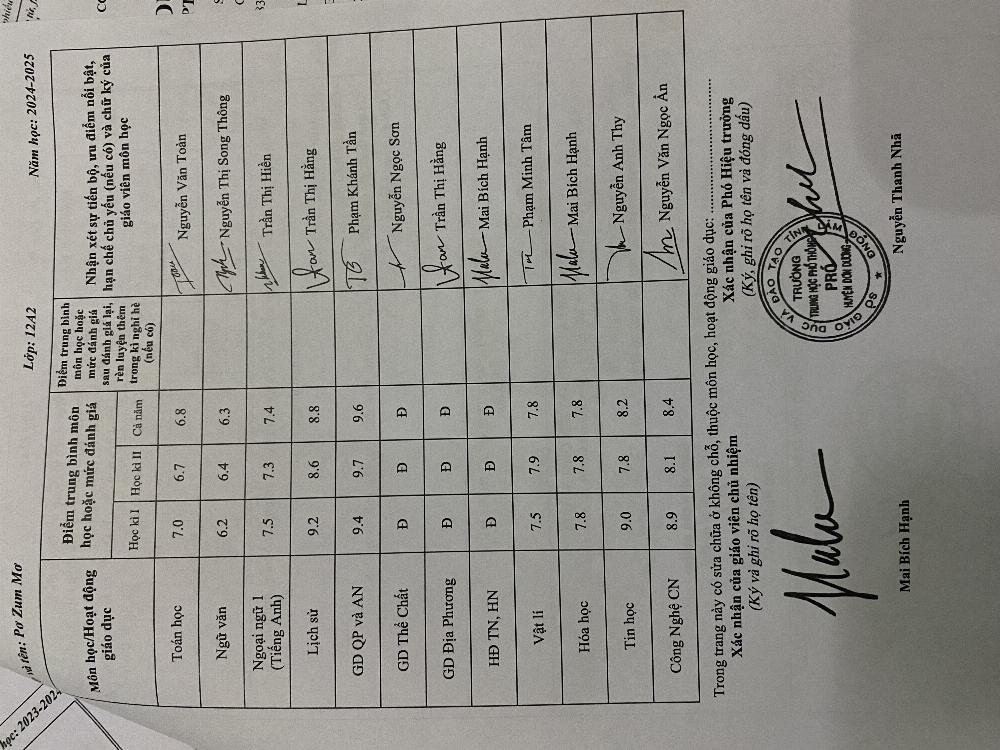 học: 2023-2024
và tên: Pơ Zum Mơ Lớp: 12A2 Năm học: 2024-2025
Môn học/Hoạt động giáo dục
Điểm trung bình môn học hoặc mức đánh giá
Điểm trung bình môn học hoặc mức đánh giá sau đánh giá lại, rèn luyện thêm trong kì nghỉ hè (nếu có)
Nhận xét sự tiến bộ, ưu điểm nổi bật, hạn chế chủ yếu (nếu có) và chữ ký của giáo viên môn học
Học kì I Học kì II Cả năm
Toán học 7.0 6.7 6.8 Nguyễn Văn Toàn
Ngữ văn 6.2 6.4 6.3 Nguyễn Thị Song Thông
Ngoại ngữ 1 (Tiếng Anh) 7.5 7.3 7.4 Trần Thị Hiền
Lịch sử 9.2 8.6 8.8 Trần Thị Hằng
GD QP và AN 9.4 9.7 9.6 Phạm Khánh Tần
GD Thể Chất Đ Đ Đ Nguyễn Ngọc Sơn
GD Địa Phương Đ Đ Đ Trần Thị Hằng
HĐ TN, HN Đ Đ Đ Mai Bích Hạnh
Vật lí 7.5 7.9 7.8 Phạm Minh Tâm
Hóa học 7.8 7.8 7.8 Mai Bích Hạnh
Tin học 9.0 7.8 8.2 Nguyễn Anh Thy
Công Nghệ CN 8.9 8.1 8.4 Nguyễn Văn Ngọc Ân
Trong trang này có sửa chữa ở không chỗ, thuộc môn học, hoạt động giáo dục:
Xác nhận của giáo viên chủ nhiệm
(Ký và ghi rõ họ tên)
Mai Bích Hạnh
Xác nhận của Phó Hiệu trưởng
(Ký, ghi rõ họ tên và đóng dấu)
SỞ GIÁO DỤC VÀ ĐÀO TẠO TỈNH LÂM ĐỒNG
TRƯỜNG
TRUNG HỌC PHỔ THÔNG
PRÓ
HUYỆN ĐƠN DƯƠNG
Nguyễn Thanh Nhã